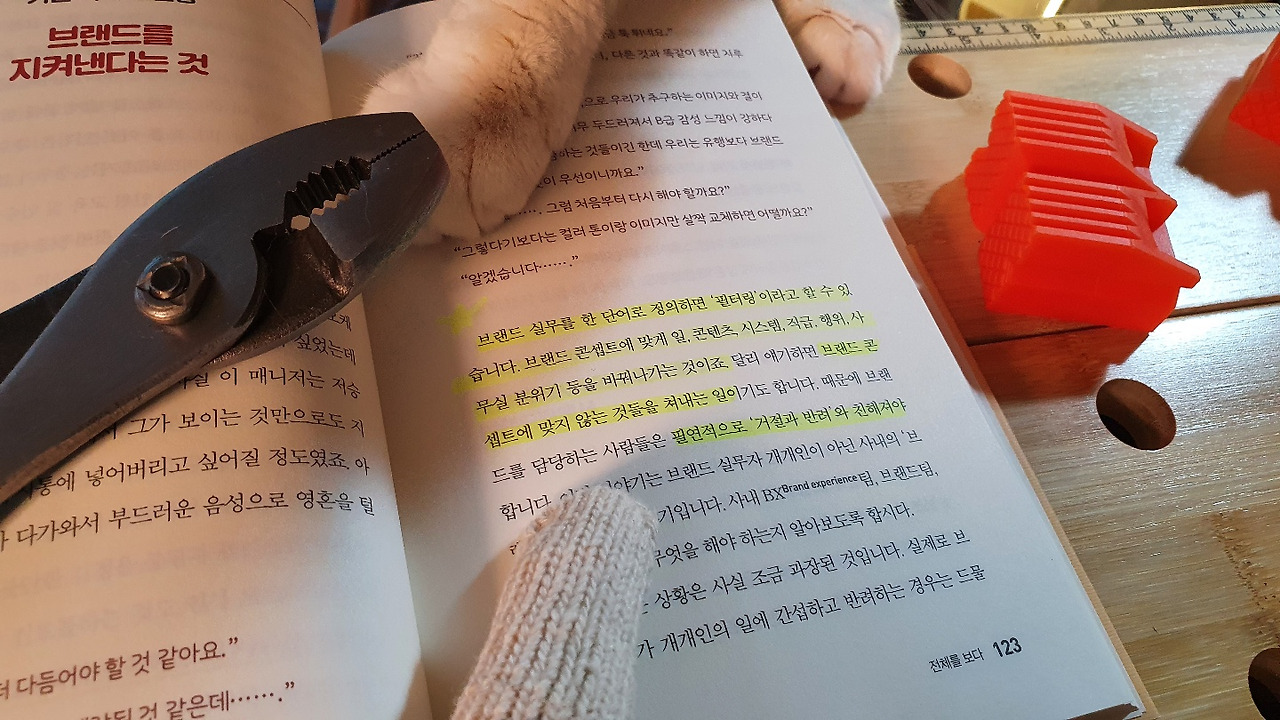 브랜드를
지켜낸다는 것
싶었는데
이 매니저는 저승
그가 보이는 것만으로도 지
통에 넣어버리고 싶어질 정도였죠. 아
다가와서 부드러운 음성으로 영혼을 털
다듬어야 할 것 같아요.”
것 같은데…….”
툭 튀네요.”
다른 것과 똑같이 하면 지루
으로 우리가 추구하는 이미지와 결이
두드러져서 B급 감성 느낌이 강하다
하는 것들이긴 한데 우리는 유행보다 브랜드
이 우선이니까요.”
그럼 처음부터 다시 해야 할까요?”
“그렇다기보다는 컬러 톤이랑 이미지만 살짝 교체하면 어떨까요?”
“알겠습니다…….”
브랜드 실무를 한 단어로 정의하면 ‘필터링’이라고 할 수 있
습니다. 브랜드 콘셉트에 맞게 일, 콘텐츠, 시스템, 직급, 행위, 사
무실 분위기 등을 바꿔나가는 것이죠. 달리 얘기하면 브랜드 콘
셉트에 맞지 않는 것들을 쳐내는 일이기도 합니다. 때문에 브랜
드를 담당하는 사람들은 필연적으로 ‘거절과 반려’와 친해져야
합니다. 이야기는 브랜드 실무자 개개인이 아닌 사내의 ‘브
기입니다. 사내 BX Brand experience팀, 브랜드팀,
무엇을 해야 하는지 알아보도록 합시다.
상황은 사실 조금 과장된 것입니다. 실제로 브
가 개개인의 일에 간섭하고 반려하는 경우는 드물
전체를 보다 123